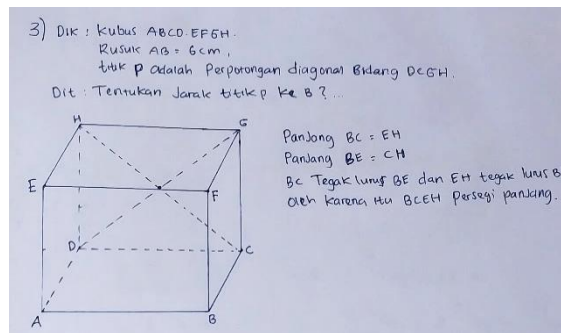 3) Dik : Kubus ABCD.EFGH.
Rusuk AB = 6cm.
titik P adalah Perporongan diagonal Bidang DCGH.
Dit : Tentukan Jarak titik P ke B ? ...
H
G
Panjang BC = EH
Panjang BE = CH
BC Tegak lurus BE dan EH tegak lurus B
Oleh karena itu BCEH Persegi panjang.
E
F
D
C
A
B